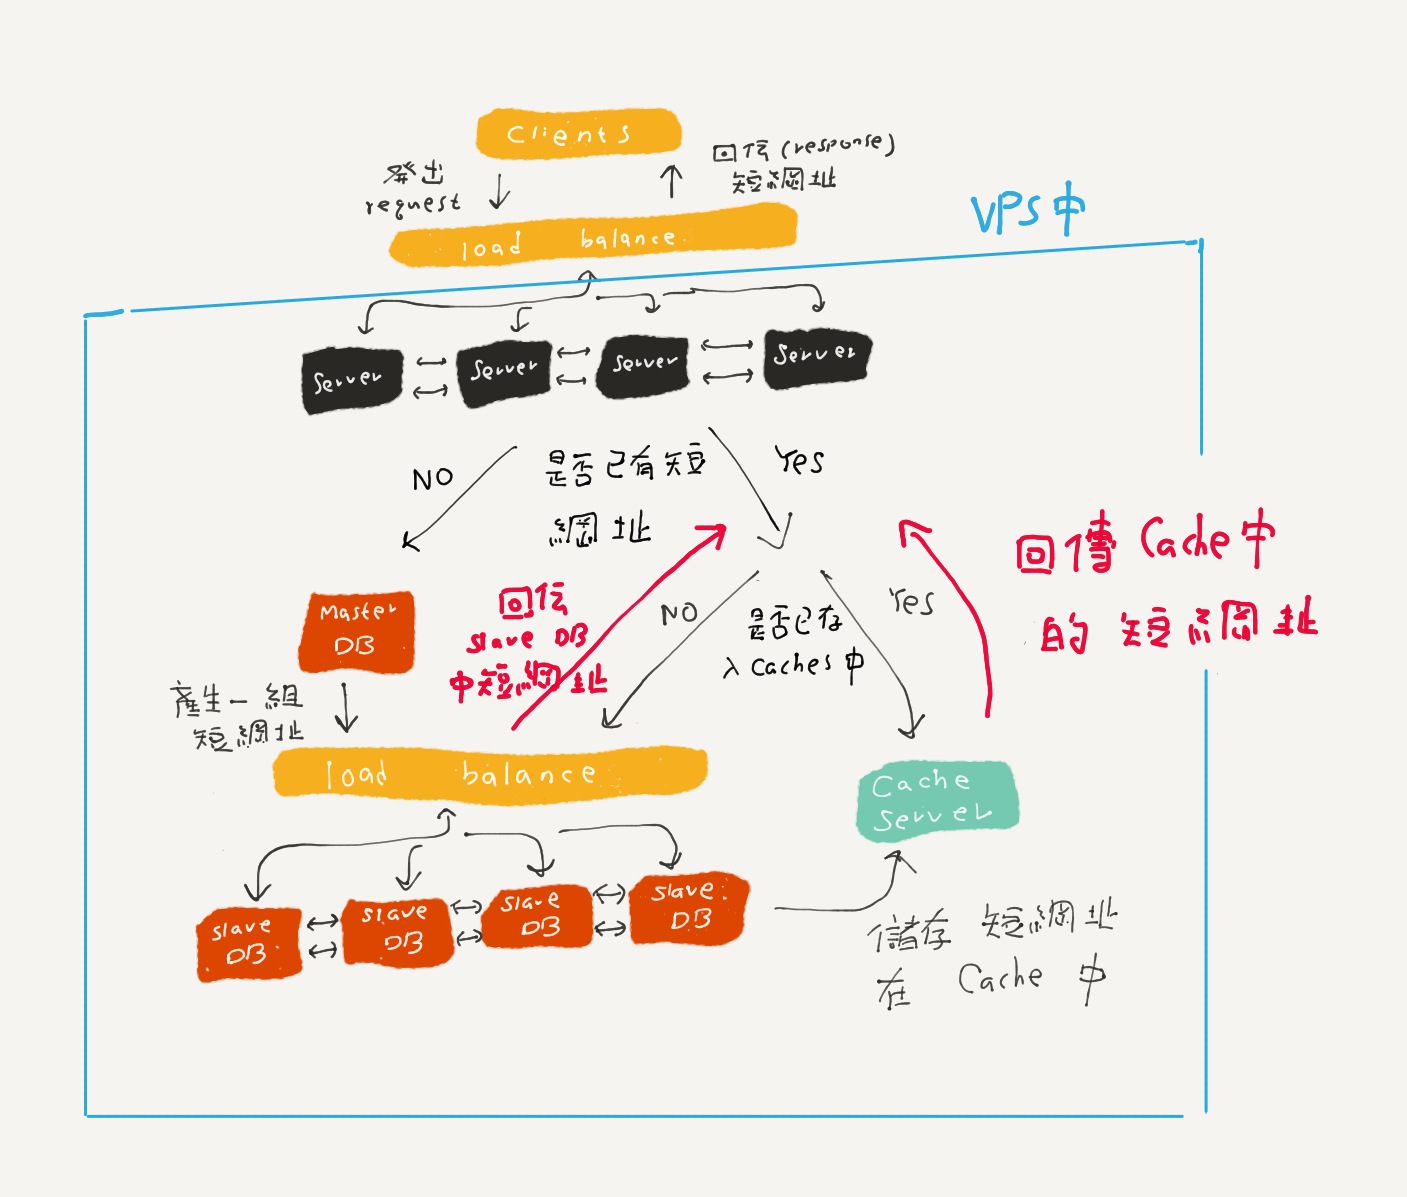 Clients
發出
request
回傳 (response)
短網址
VPS中
load balance
Server
Server
Server
Server
NO
是否已有短
網址
Yes
回傳 Cache中
的 短網址
Master
DB
回傳
slave DB
中短網址
NO
是否已存
入 Caches 中
Yes
產生一組
短網址
load balance
Cache
Server
slave
DB
slave
DB
slave
DB
slave
DB
儲存 短網址
在 Cache 中